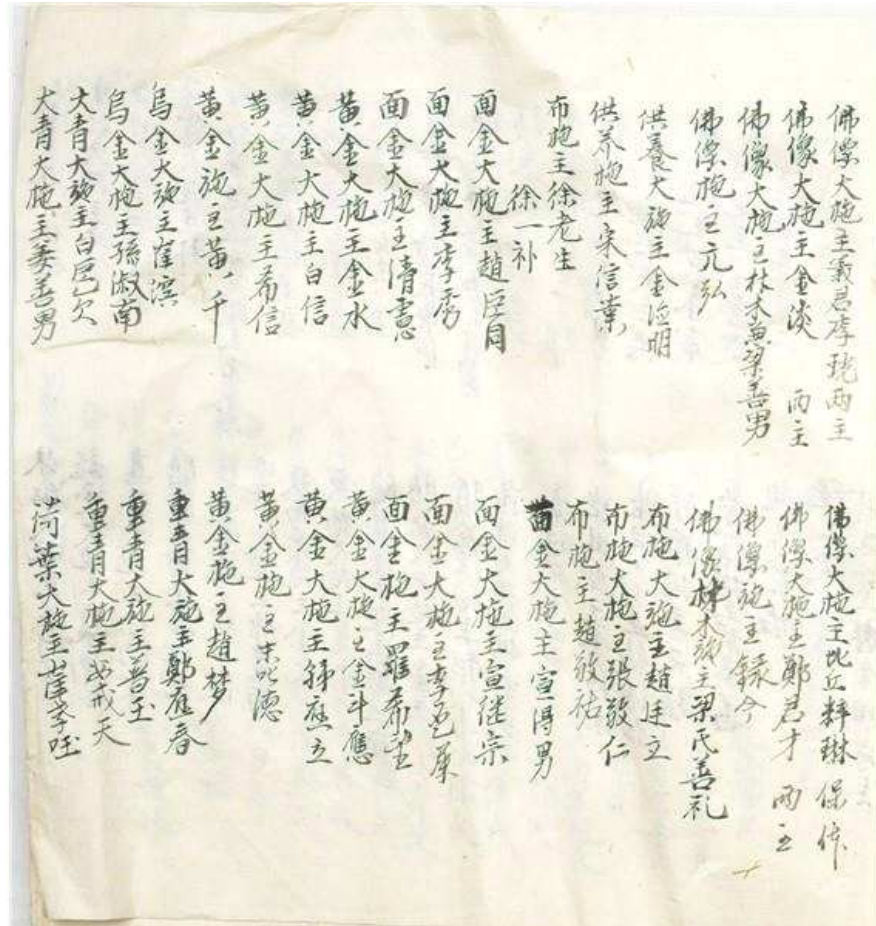 佛像大施主義君李琓兩主
佛像大施主金淡 兩主
佛像大施主林木兼梁善男
佛像施主元弘
供養大施主金海明
供养施主宋信業
布施主徐老生
徐一补
面金大施主趙臣同
面金大施主李秀
面金大施主清憲
黄金大施主金水
黄金大施主白信
黄金大施主希信
黄金施主黄千
烏金大施主崔濱
烏金大施主孫淑南
大青大施主白
大青大施主姜善男
佛像大施主比丘粹琳 保体
佛像大施主鄭君才 兩主
佛像施主録今
佛像林木施主梁氏善礼
布施大施主趙廷立
布施大施主張敬仁
布施主趙敬祐
面金大施主宣得男
面金大施主宣继宗
面金大施主李
面金施主羅希
黄金大施主金斗應
黄金大施主 應立
黄金施主 德
黄金施主趙梦
重青大施主鄭應春
重青大施主普玉
重青大施主 戒天
荷葉大施主崔